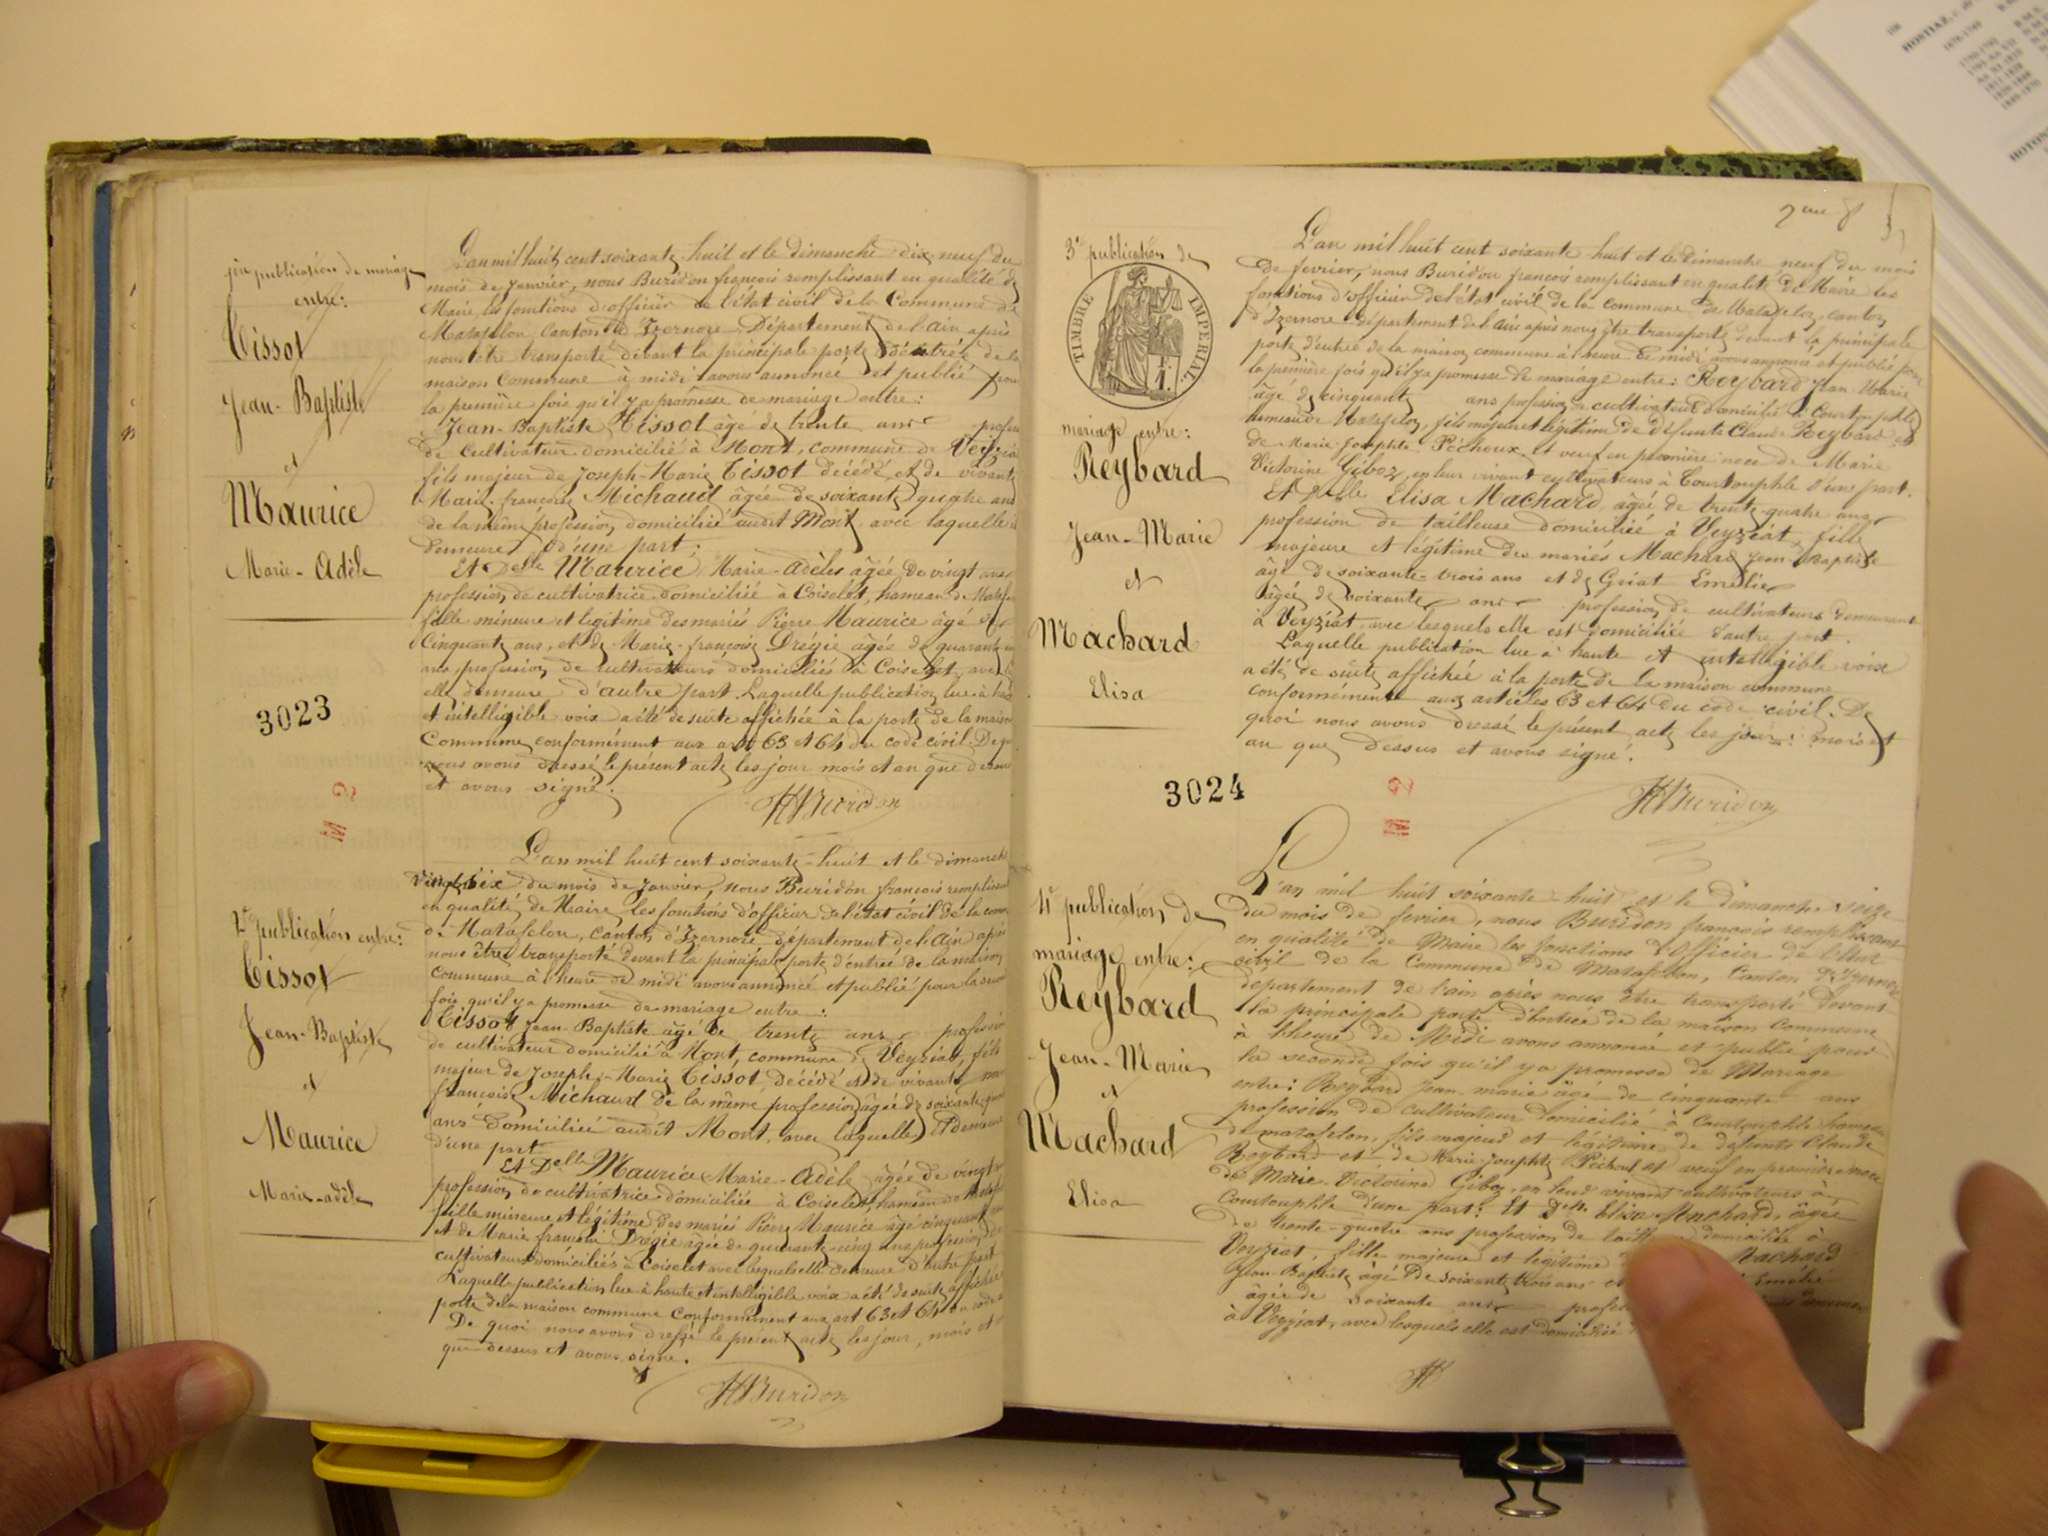 1re publication de mariage
entre:
Tissot
Jean-Baptiste
et
Maurice
Marie-Adèle
L'an mil huit cent soixante-huit et le dimanche dix-neuf du
mois de Janvier, nous Buridon françois remplissant en qualité de
Maire les fonctions d'officier de l'état civil de la Commune de
Matafelon Canton d'Izernore Département de l'Ain après
nous être transporté devant la principale porte d'entrée de la
maison Commune à midi avons annoncé et publié pour
la première fois qu'il y a promesse de mariage entre:
Jean-Baptiste Tissot âgé de trente ans profession
de cultivateur domicilié à Mont, commune de Veyziat
fils majeur de Joseph-Marie Tissot décédé, et de vivante
Marie-françoise Michaud âgée de soixante quatre ans
de la même profession, domiciliée audit Mont, avec laquelle il
demeure, d'une part;
Et Delle Maurice, Marie-Adèle âgée de vingt ans
profession de cultivatrice domiciliée à Coiselet, hameau de Matafelon
fille mineure et légitime des mariés Pierre Maurice âgé de
Cinquante ans, et de Marie-françoise Drégie âgée de quarante
ans profession de cultivateurs domiciliés à Coiselet, avec
elle demeure d'autre part. Laquelle publication lue à haute
et intelligible voix a été de suite affichée à la porte de la maison
Commune conformément aux art 63 et 64 du code civil. De quoi
nous avons dressé le présent acte les jour mois et an que dessus
et avons signé.
Buridon
3023
2 M
2e publication entre:
Tissot
Jean-Baptiste
et
Maurice
Marie-adèle
L'an mil huit cent soixante-huit et le dimanche
vingt-six du mois de Janvier, nous Buridon françois remplissant
en qualité de Maire les fonctions d'officier de l'état civil de la commune
de Matafelon, canton d'Izernore département de l'Ain après
nous être transporté devant la principale porte d'entrée de la maison
commune à l'heure de midi avons annoncé et publié pour la seconde
fois qu'il y a promesse de mariage entre:
Tissot Jean-Baptiste âgé de trente ans profession
de cultivateur domicilié à Mont, commune de Veyziat, fils
majeur de Joseph-Marie Tissot, décédé et de vivante
françoise Michaud de la même profession âgée de soixante quatre
ans domiciliée audit Mont, avec laquelle il demeure
d'une part
Et Delle Maurice Marie-Adèle âgée de vingt
profession de cultivatrice domiciliée à Coiselet, hameau de Matafelon
fille mineure et légitime des mariés Pierre Maurice âgé cinquante
et de Marie françoise Drégie âgée de quarante-cinq ans profession de
cultivateurs domiciliés à Coiselet avec lesquels elle demeure d'autre part
Laquelle publication lue à haute et intelligible voix a été de suite affichée
porte de la maison commune conformément aux art 63 et 64 du code
De quoi nous avons dressé le présent acte les jour, mois et
que dessus et avons signé.
Buridon
2me f
3e publication de
TIMBRE IMPERIAL
mariage entre:
Reybard
Jean-Marie
et
Machard
Elisa
L'an mil huit cent soixante huit et le dimanche neuf du mois
de fevrier, nous Buridon françois remplissant en qualité de Maire les
fonctions d'officier de l'état civil de la commune de Matafelon, canton
d'Izernore département de l'Ain après nous être transporté devant la principale
porte d'entrée de la maison commune à heure de midi avons annoncé et publié pour
la première fois qu'il y a promesse de mariage entre: Reybard Jean-Marie
âgé de cinquante ans profession de cultivateur domicilié à Courtouphle
hameau de Matafelon, fils majeur et légitime de défunts Claude Reybard et
de Marie-Josephte Péchoux et veuf en première noce de Marie
Victorine Giboz, en leur vivant cultivateurs à Courtouphle d'une part.
Et Delle Elisa Machard, âgée de trente-quatre ans
profession de tailleuse domiciliée à Veyziat, fille
majeure et légitime des mariés Machard Jean-Baptiste
âgé de soixante-trois ans et de Goiat Emélie
âgée de soixante ans profession de cultivateurs demeurant
à Veyziat, avec lesquels elle est domiciliée d'autre part.
Laquelle publication lue à haute et intelligible voix
a été de suite affichée à la porte de la maison commune
conformément aux articles 63 et 64 du code civil. De
quoi nous avons dressé le présent acte les jour, mois et
an que dessus et avons signé.
Buridon
3024
2 M
4e publication de
mariage entre:
Reybard
Jean-Marie
et
Machard
Elisa
L'an mil huit soixante huit et le dimanche seize
du mois de fevrier, nous Buridon françois remplissant
en qualité de Maire les fonctions d'Officier de l'état
civil de la Commune de Matafelon, Canton d'Izernore
département de l'ain après nous être transporté devant
la principale porte d'entrée de la maison Commune
à l'heure de Midi avons annoncé et publié pour
la seconde fois qu'il y a promesse de Mariage
entre: Reybard Jean-marie âgé de cinquante ans
profession de cultivateur domicilié à Courtouphle hameau
de matafelon, fils majeur et légitime de défunts Claude
Reybard et de Marie-Josephte Péchoux et veuf en première noce
de Marie-Victorine Giboz, en leur vivant cultivateurs à
Courtouphle d'une part: Et Delle Elisa Machard, âgée
de trente-quatre ans profession de domiciliée à
Veyziat, fille majeure et légitime Machard
Jean-Baptiste âgé de soixante trois ans et Emélie
âgée de soixante ans
à Veyziat, avec lesquels elle est domiciliée